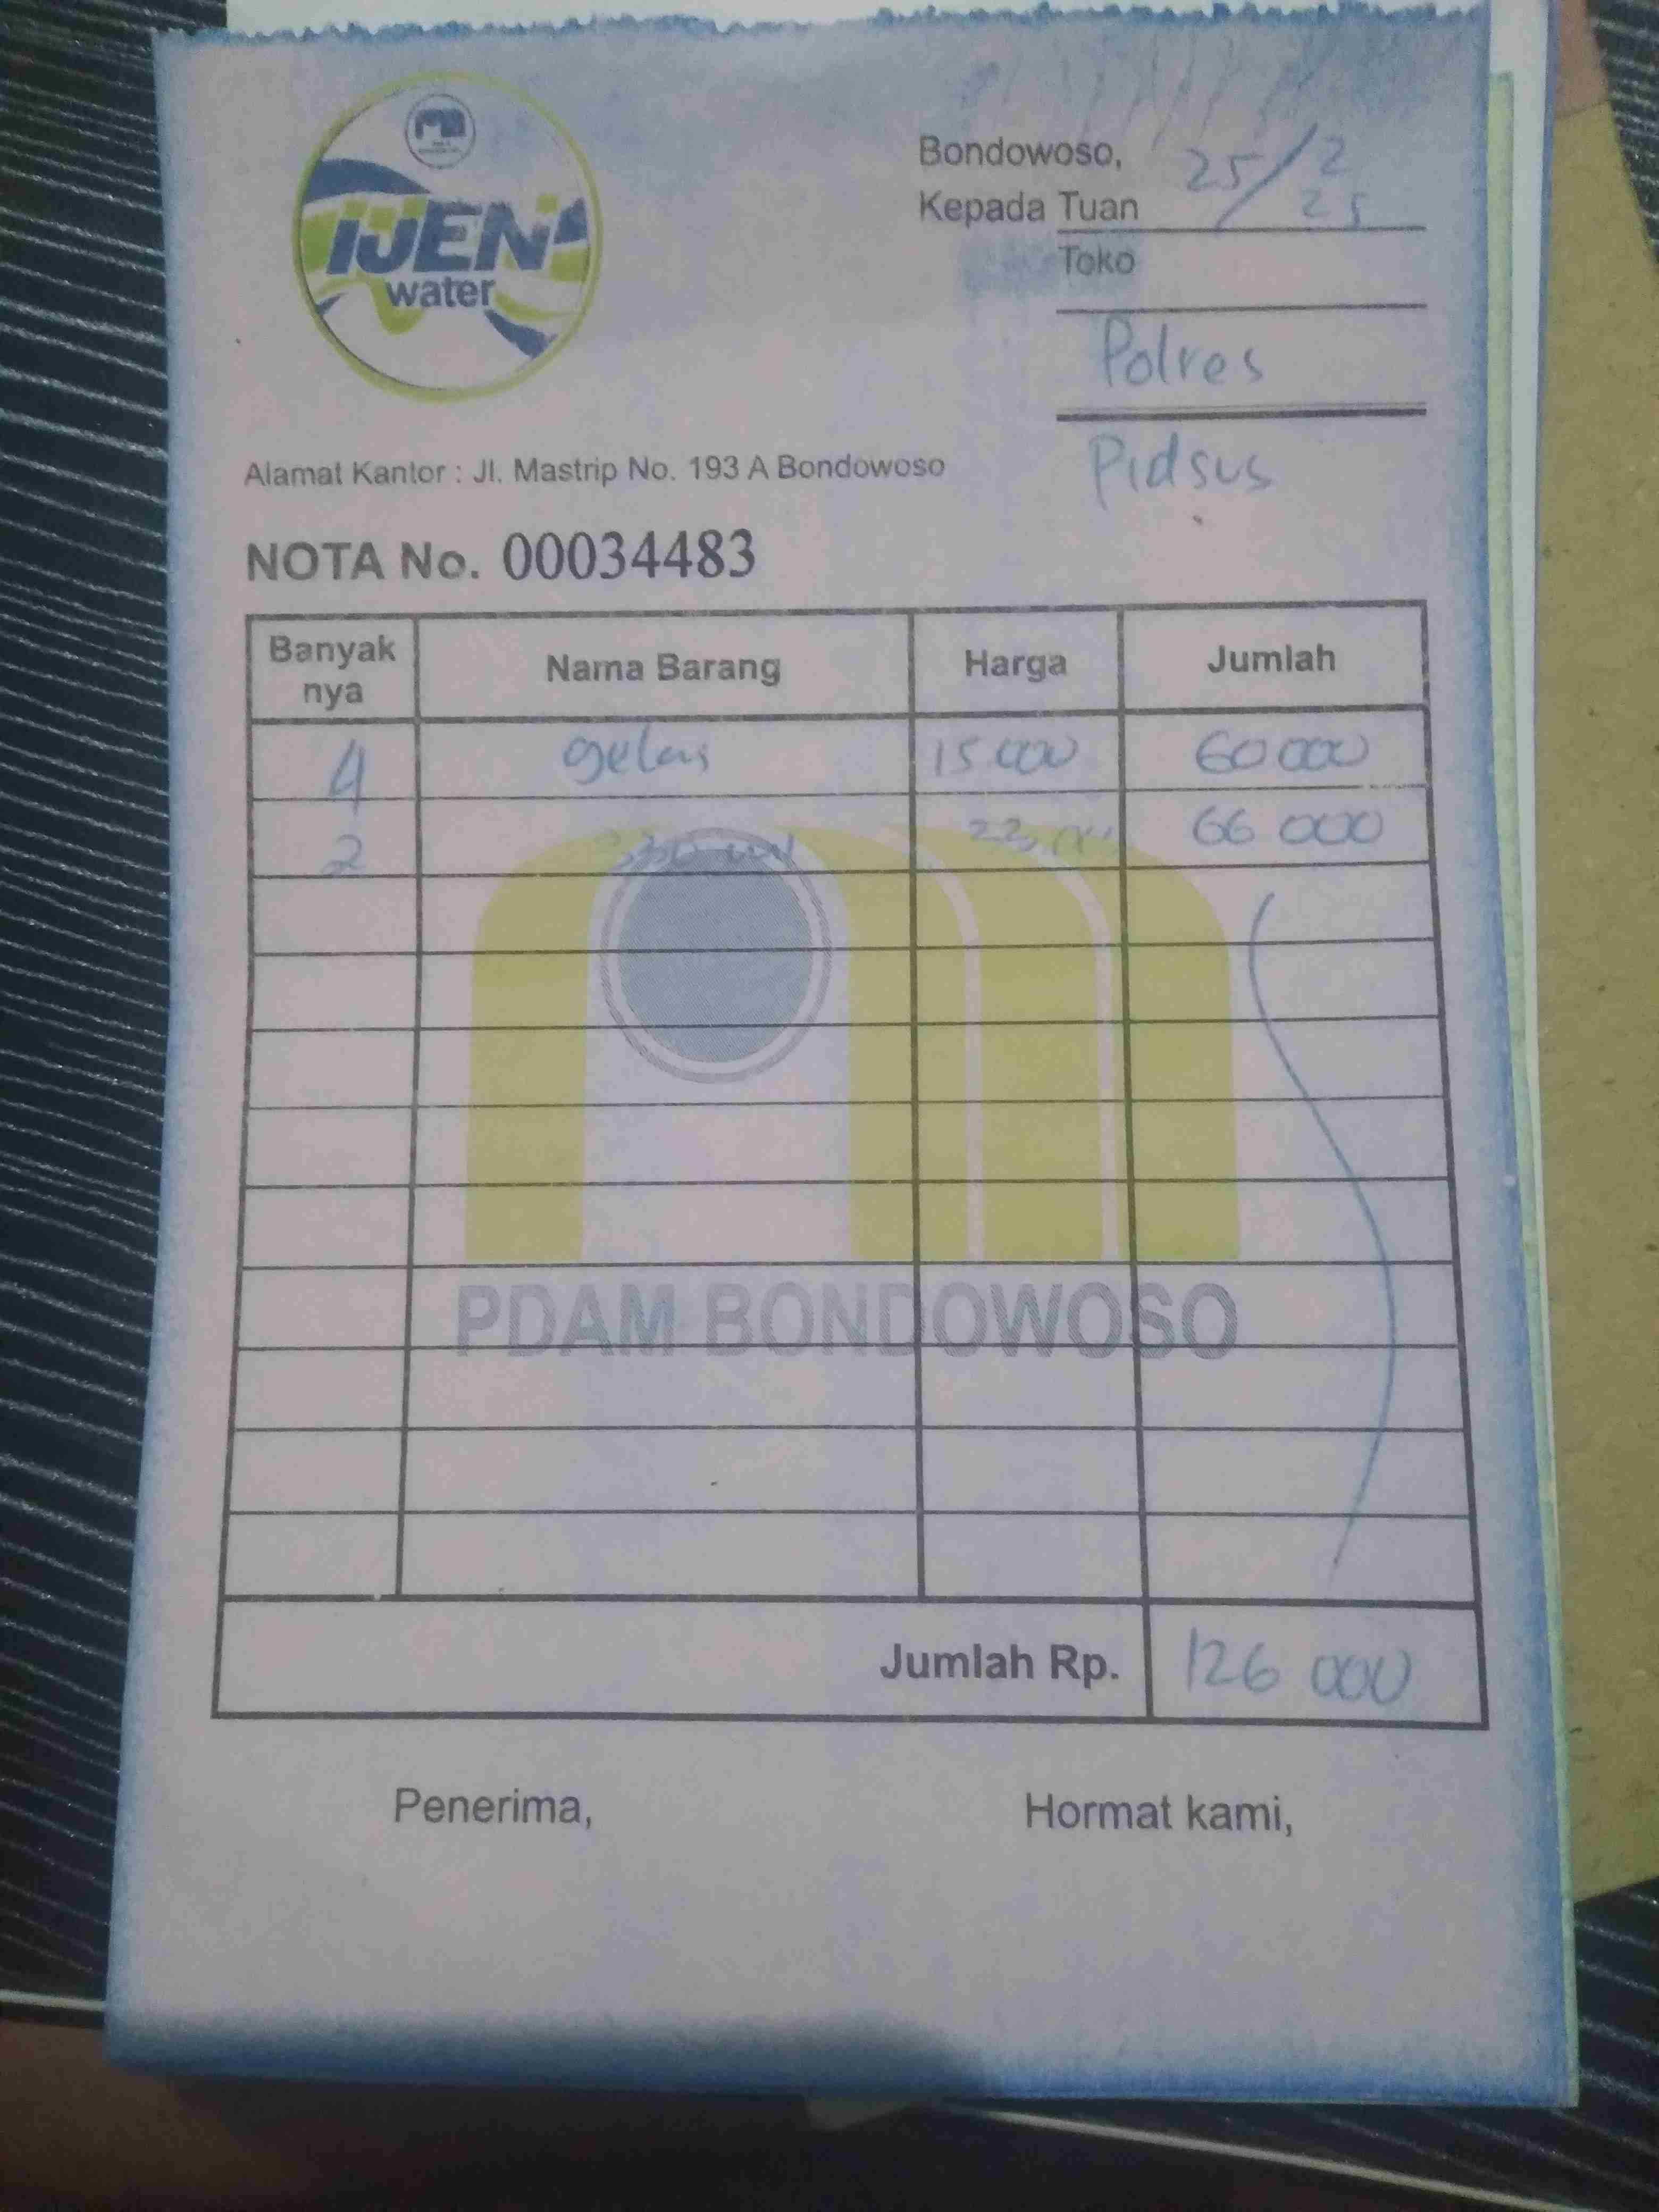 IJEN
water
Bondowoso, 25/2 25
Kepada Tuan
Toko
Polres
Pidsus
Alamat Kantor : Jl. Mastrip No. 193 A Bondowoso
NOTA No. 00034483
Banyak nya Nama Barang Harga Jumlah
4 gelas 15 000 60 000
2 330 66 000
PDAM BONDOWOSO
Jumlah Rp. 126 000
Penerima, Hormat kami,